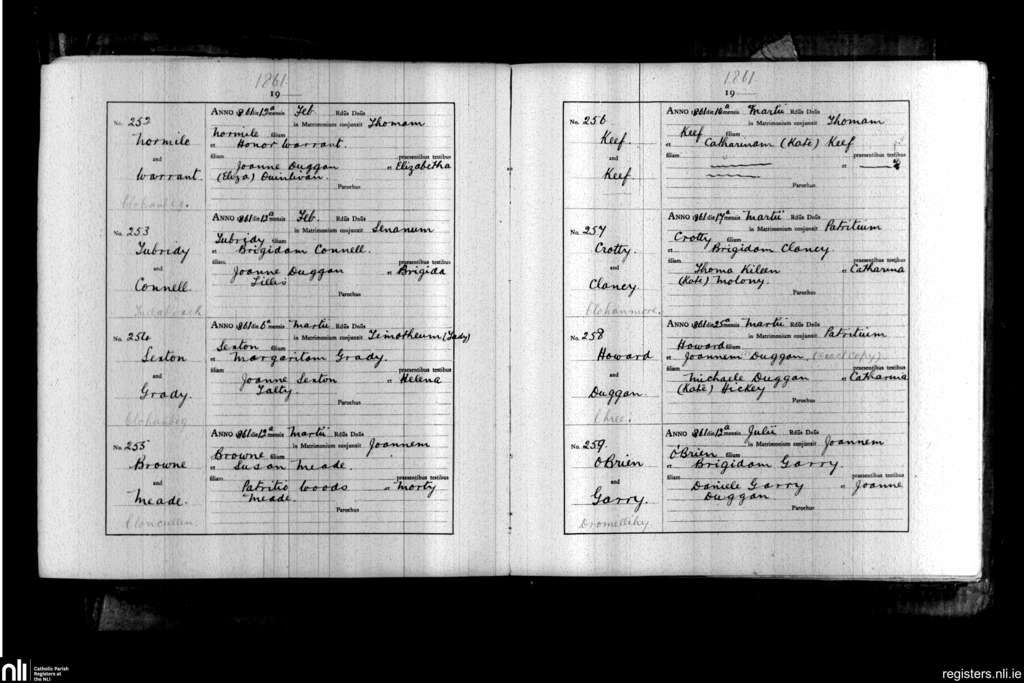 1861
19
No. 252
Normile
and
Warrant.
Clohanbeg.
ANNO 1861 die 12a mensis Feb. Rdus Dnus
in Matrimonium conjunxit Thomam
Normile filium
et Honor Warrant.
filiam praesentibus testibus
Joanne Duggan et Elizabitha
(Eliza) Quinlivan.
Parochus
No. 253
Tubridy
and
Connell.
ANNO 1861 die 12a mensis Feb. Rdus Dnus
in Matrimonium conjunxit Senanum
Tubridy filium
et Brigidam Connell.
filiam praesentibus testibus
Joanne Duggan et Brigida
Lillis
Parochus
No. 254
Sexton
and
Grady.
Clohanbeg
ANNO 1861 die 6a mensis Martii Rdus Dnus
in Matrimonium conjunxit Timotheum (Tady)
Sexton filium
et Margaritam Grady.
filiam praesentibus testibus
Joanne Sexton et Helena
Talty.
Parochus
No. 255
Browne
and
Meade.
Cloncullen.
ANNO 1861 die 12a mensis Martii Rdus Dnus
in Matrimonium conjunxit Joannem
Browne filium
et Susan Meade.
filiam praesentibus testibus
Patritio Woods et Morty
Meade.
Parochus
1861
19
No. 256.
Keef.
and
Keef.
ANNO 1861 die 16a mensis Martii Rdus Dnus
in Matrimonium conjunxit Thomam
Keef filium
et Catharinam (Kate) Keef
filiam praesentibus testibus
et
Parochus
No. 257
Crotty.
and
Clancy
Clohanmore.
ANNO 1861 die 17a mensis Martii Rdus Dnus
in Matrimonium conjunxit Patritium
Crotty filium
et Brigidam Clancy.
filiam praesentibus testibus
Thoma Kileen et Catharina
(Kate) Molony.
Parochus
No. 258
Howard
and
Duggan.
Chree.
ANNO 1861 die 25a mensis Martii Rdus Dnus
in Matrimonium conjunxit Patritium
Howard filium
et Joannem Duggan. (exact copy)
filiam praesentibus testibus
Michaele Duggan et Catharina
(Kate) Hickey
Parochus
No. 259.
O'Brien
and
Garry.
Dromellihy.
ANNO 1861 die 12a mensis Julii Rdus Dnus
in Matrimonium conjunxit Joannem
O'Brien filium
et Brigidam Garry.
filiam praesentibus testibus
Daniele Garry et Joanne
Duggan.
Parochus
nli Catholic Parish
Registers at
the NLI
registers.nli.ie